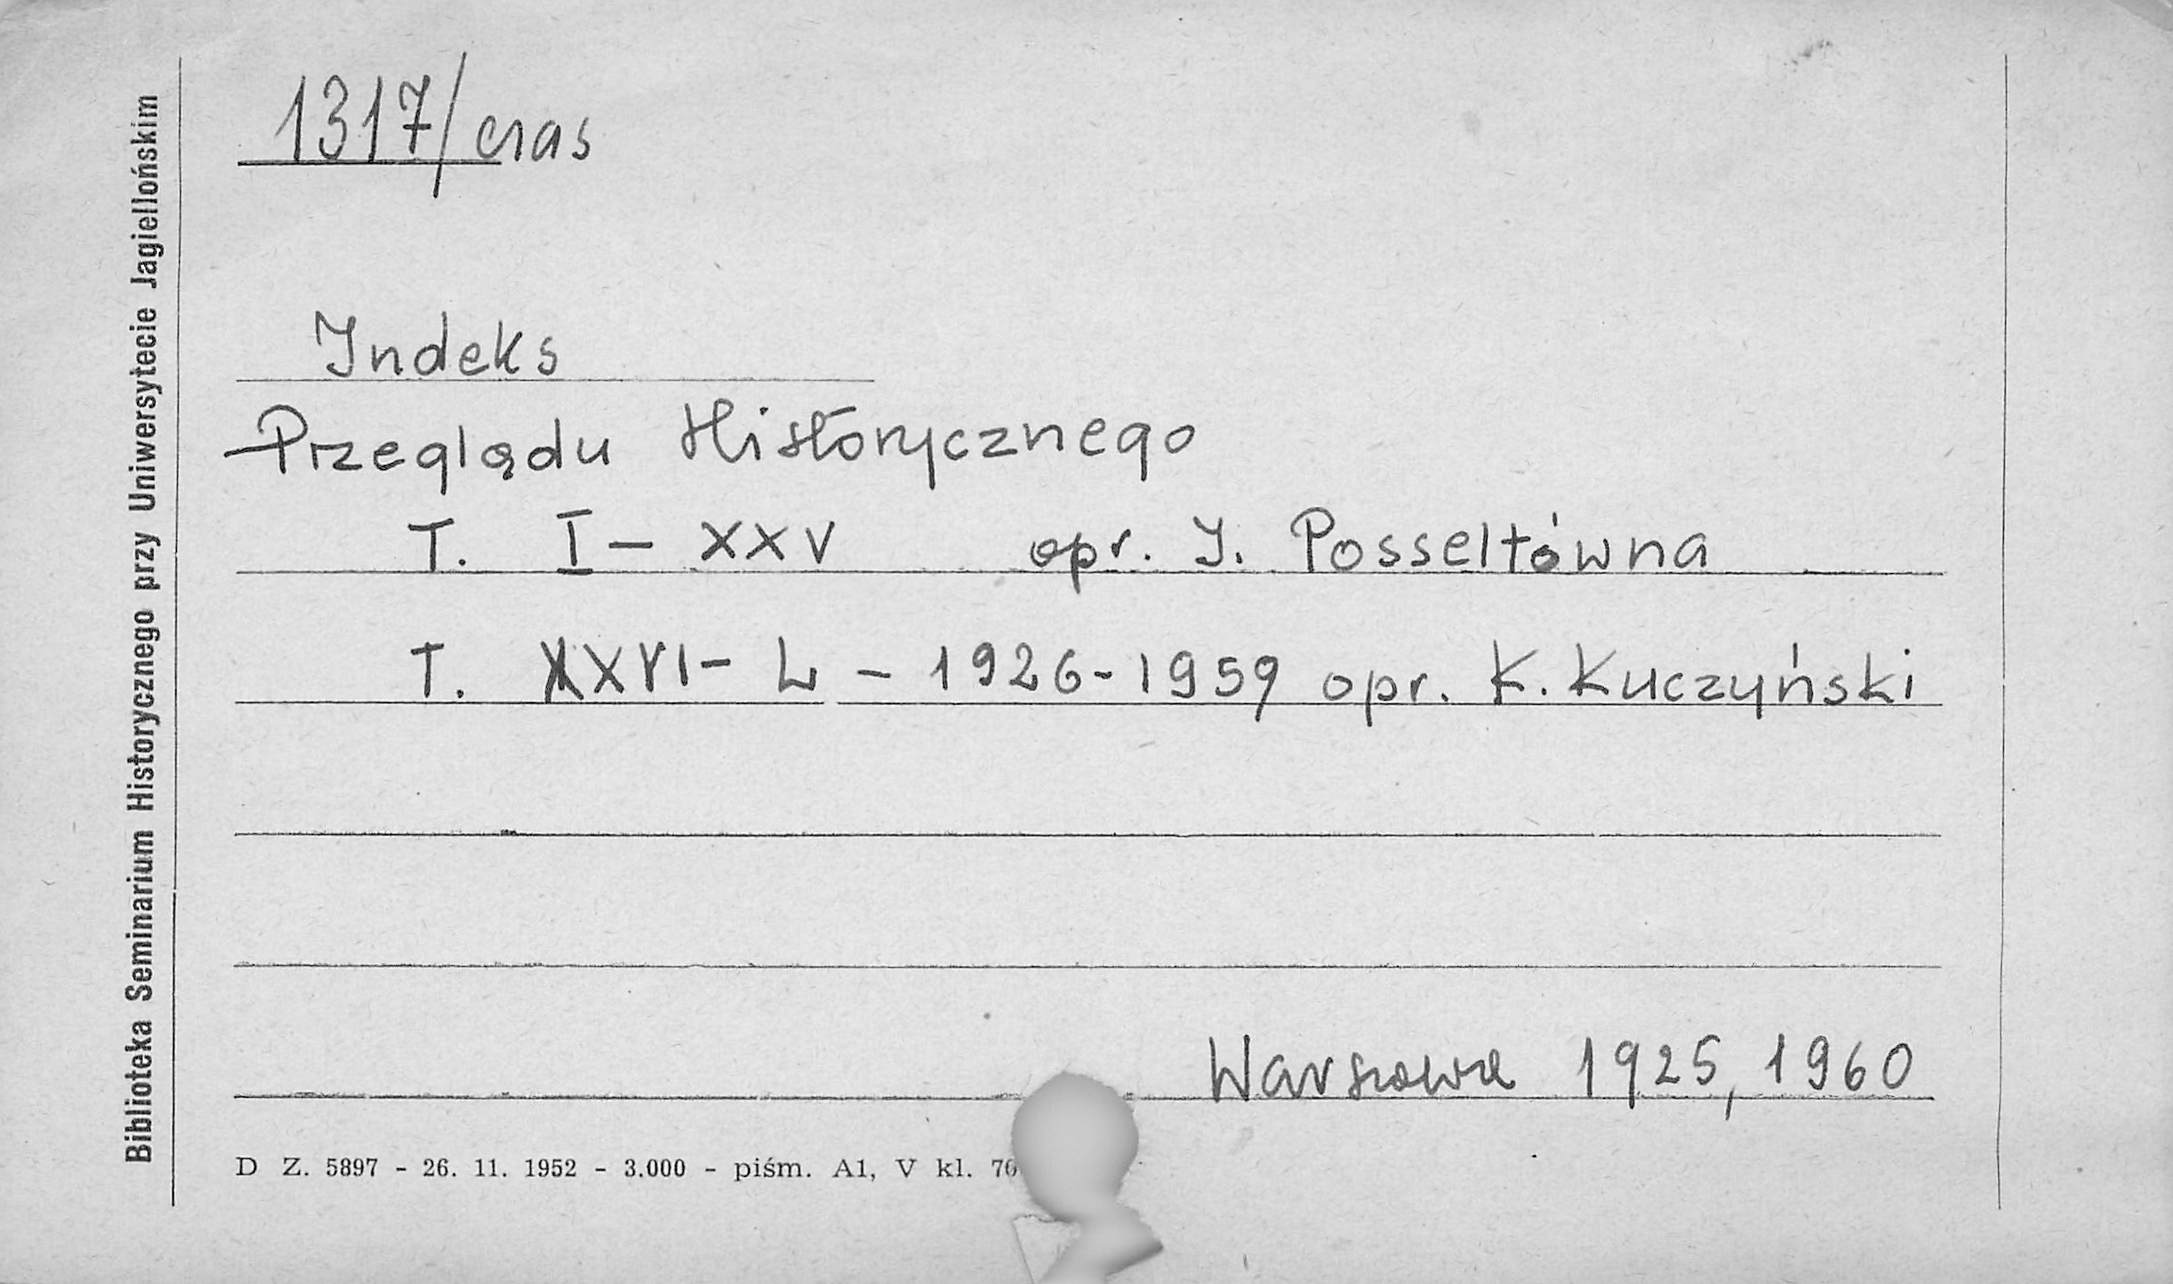 1317/czas
Indeks
Przeglądu Historycznego
T. I – XXV opr. J. Posseltówna
T. XXVI – L – 1926-1959 opr. K. Kuczyński
Warszawa 1925, 1960
D Z. 5897 - 26. 11. 1952 - 3.000 - piśm. A1, V kl. 70
Biblioteka Seminarium Historycznego przy Uniwersytecie Jagiellońskim